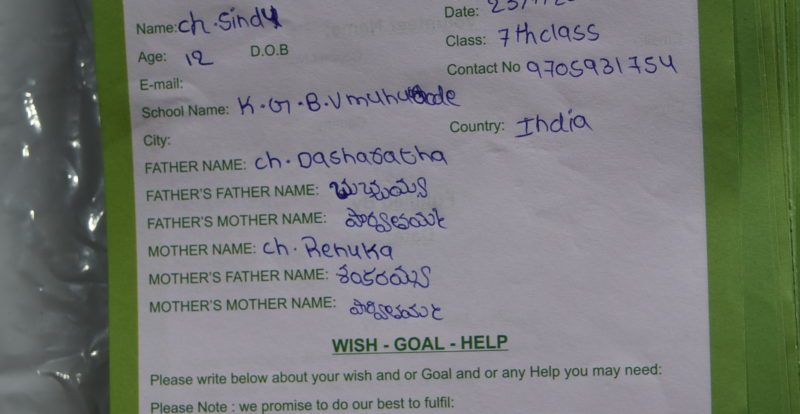 Name: ch. Sindu
Date:
Age: 12 D.O.B
Class: 7th class
E-mail:
Contact No 9705931754
School Name: K.G.B.V
City:
Country: India
FATHER NAME: ch. Dasharatha
FATHER'S FATHER NAME: బుచ్చయ్య
FATHER'S MOTHER NAME:
MOTHER NAME: ch. Renuka
MOTHER'S FATHER NAME: శంకరయ్య
MOTHER'S MOTHER NAME:
WISH - GOAL - HELP
Please write below about your wish and or Goal and or any Help you may need:
Please Note : we promise to do our best to fulfil: